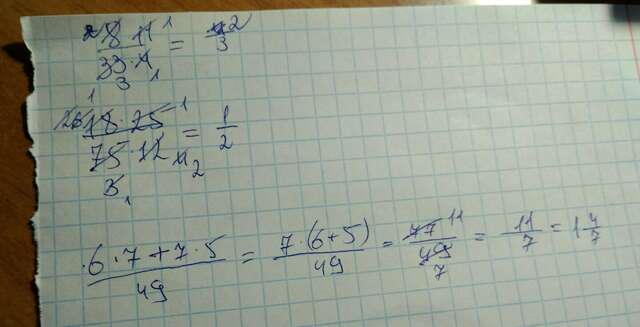 8 · 11 / 33 · 4 = 2/3
18 · 25 / 75 · 12 = 1/2
6 · 7 + 7 · 5 / 49 = 7 · (6 + 5) / 49 = 77 / 49 = 11 / 7 = 1 4/7